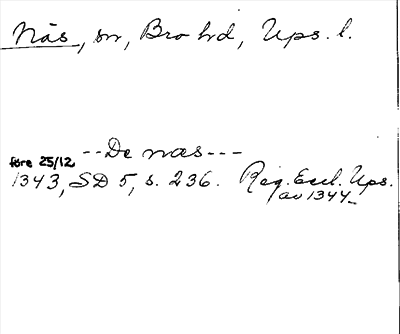 Näs, sn, Bro hd, Ups. l.
--De næs---
före 25/12
1343, SD 5, s. 236. Reg. Eccl. Ups.
av 1344